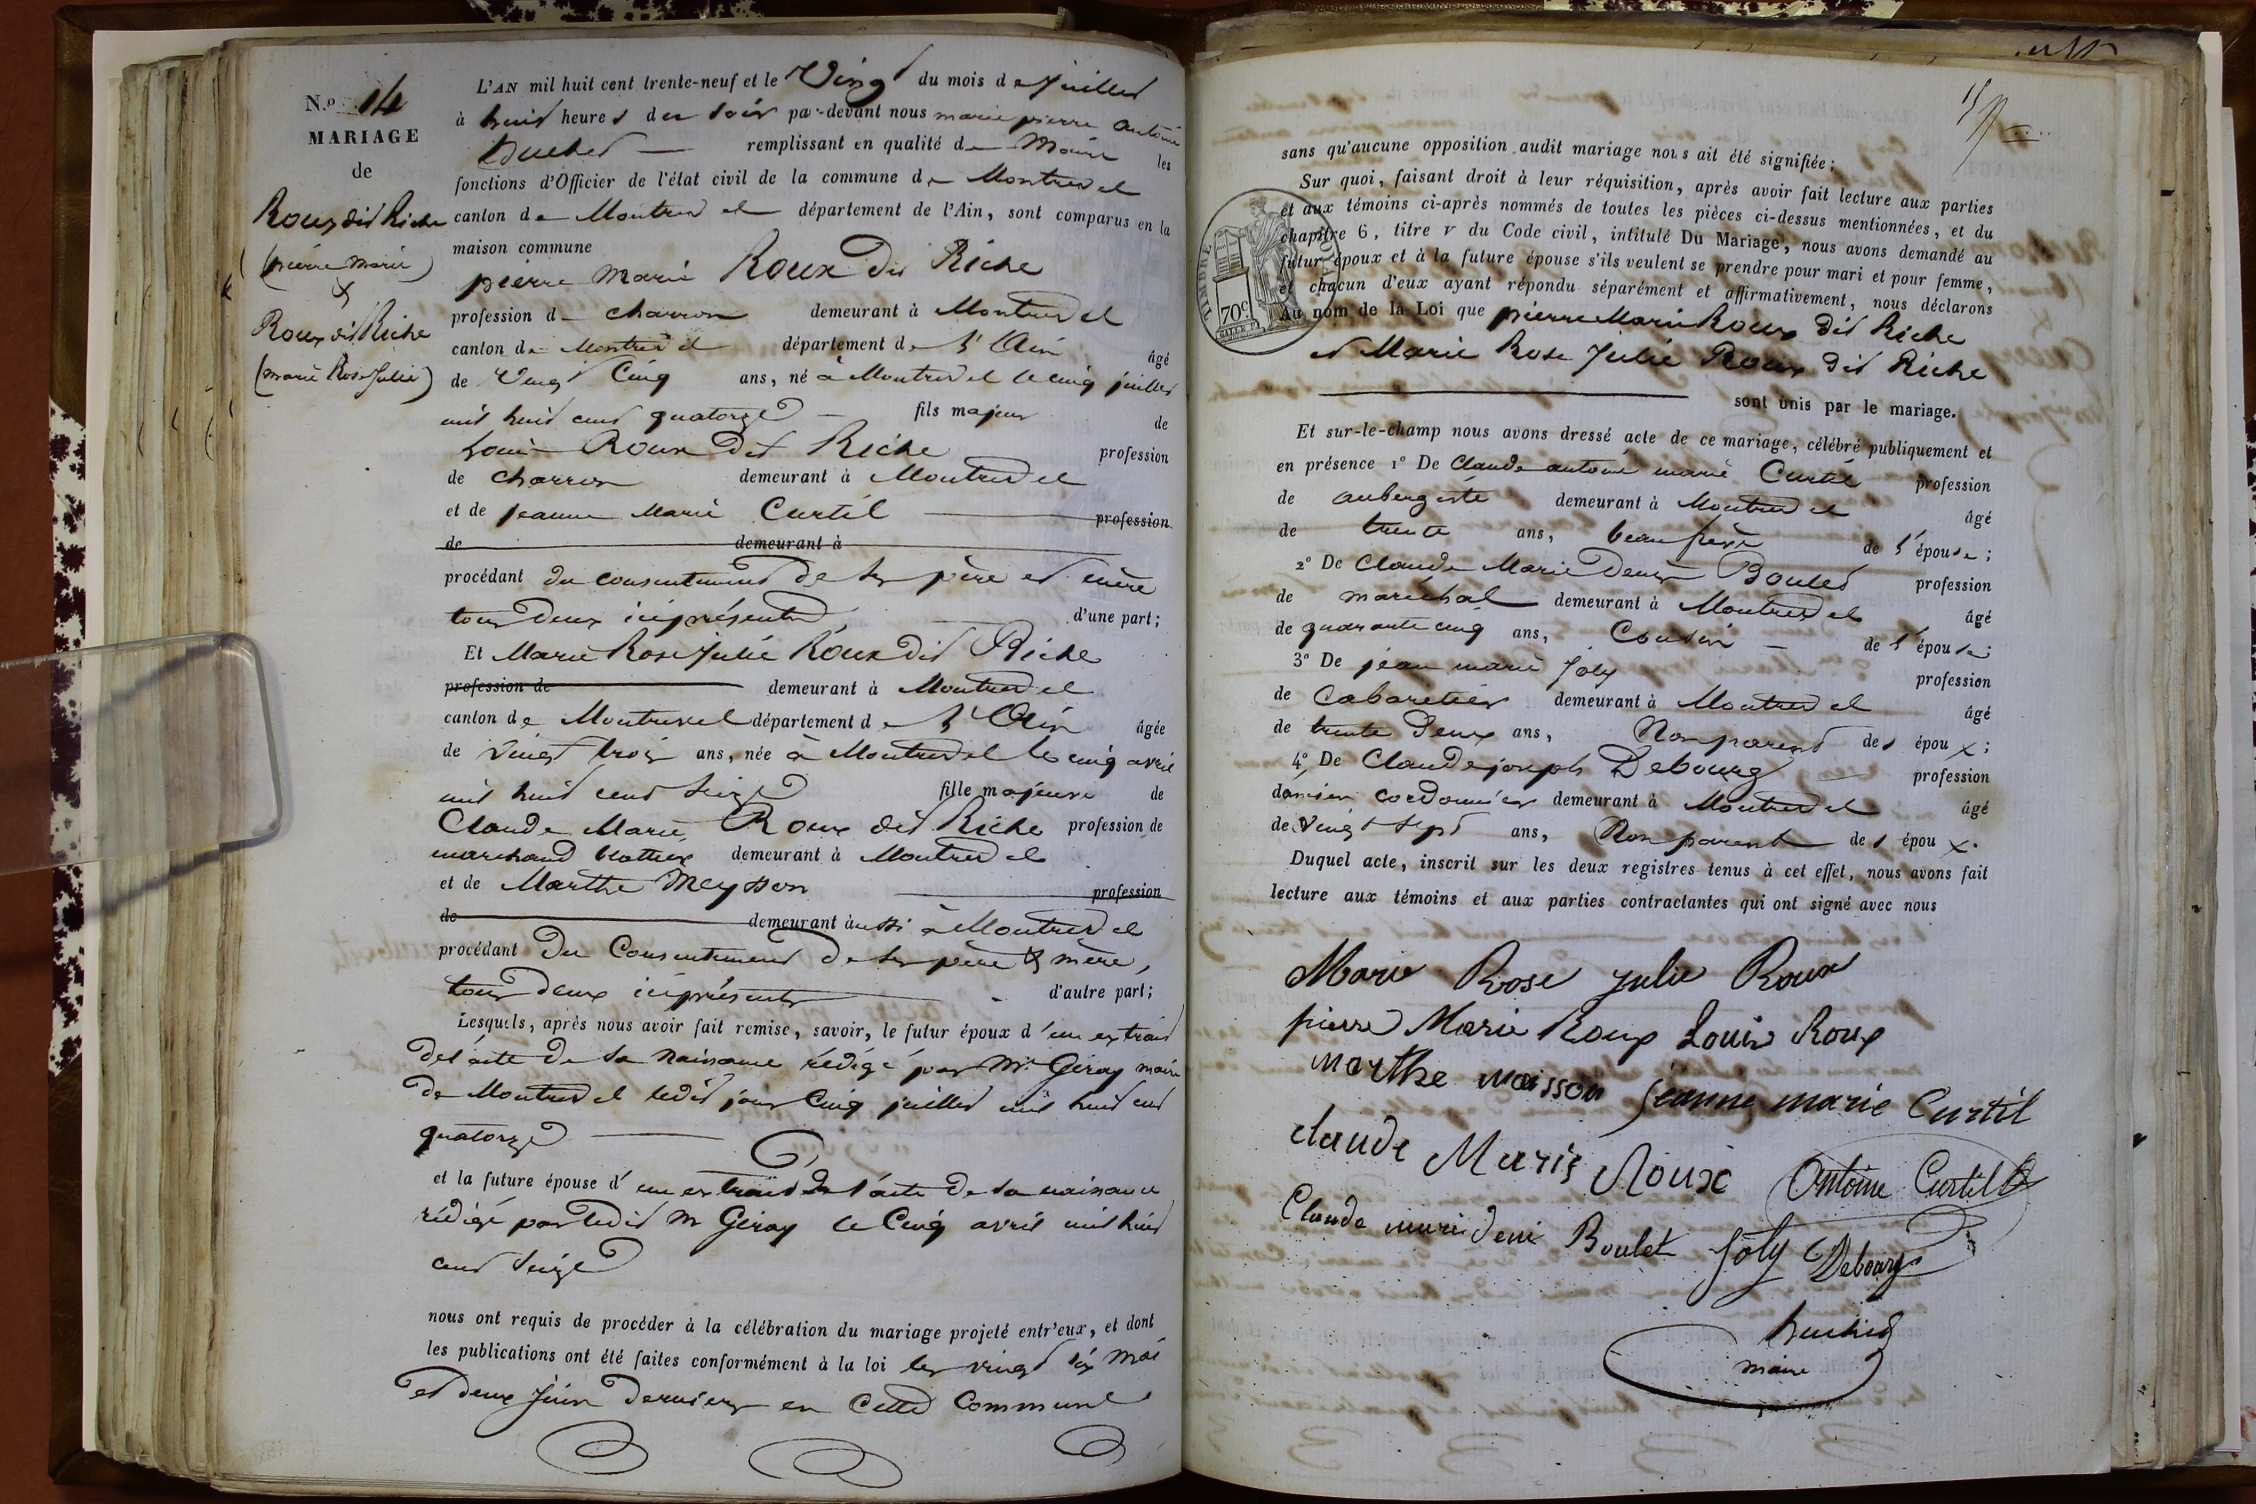 N.º 14
MARIAGE
de
Roux dit Riche
(pierre Marie)
&
Roux dit Riche
(marie Rose Julie)
L'AN mil huit cent trente-neuf et le Vingt du mois de Juillet
à huit heures du soir par-devant nous marie pierre antoine
remplissant en qualité de Maire les
fonctions d'Officier de l'état civil de la commune de Montrevel
canton de Montrevel département de l'Ain, sont comparus en la
maison commune
pierre Marie Roux dit Riche
profession de charron demeurant à Montrevel
canton de Montrevel département de l'Ain âgé
de Vingt Cinq ans, né à Montrevel le cinq juillet
mil huit cent quatorze fils majeur de
Louis Roux dit Riche profession
de charron demeurant à Montrevel
et de jeanne Marie Curtil profession
de demeurant à
procédant du consentement de ses père et mère
tous deux ici présents d'une part;
Et Marie Rose Julie Roux dit Riche
profession de demeurant à Montrevel
canton de Montrevel département de l'Ain âgée
de Vingt trois ans, née à Montrevel le cinq avril
mil huit cent Seize fille majeure de
Claude Marie Roux dit Riche profession de
marchand demeurant à Montrevel
et de Marthe Meysson profession
de demeurant aussi à Montrevel
procédant du Consentement de ses père & mère,
tous deux ici présents d'autre part;
Lesquels, après nous avoir fait remise, savoir, le futur époux d'un extrait
de l'acte de sa Naissance rédigé par Mr. Geray maire
de Montrevel ledit jour Cinq juillet mil huit cent
quatorze
et la future épouse d'un extrait de l'acte de sa naissance
rédigé par ledit Mr Geray le Cinq avril mil huit
cent Seize
nous ont requis de procéder à la célébration du mariage projeté entr'eux, et dont
les publications ont été faites conformément à la loi les vingt six Mai
et deux Juin derniers en Cette Commune
15
sans qu'aucune opposition audit mariage nous ait été signifiée;
Sur quoi, faisant droit à leur réquisition, après avoir fait lecture aux parties
et aux témoins ci-après nommés de toutes les pièces ci-dessus mentionnées, et du
chapitre 6, titre v du Code civil, intitulé Du Mariage, nous avons demandé au
futur époux et à la future épouse s'ils veulent se prendre pour mari et pour femme,
et chacun d'eux ayant répondu séparément et affirmativement, nous déclarons
Au nom de la Loi que pierre Marie Roux dit Riche
et Marie Rose Julie Roux dit Riche
sont unis par le mariage.
TIMBRE ROYAL
70c.
Et sur-le-champ nous avons dressé acte de ce mariage, célébré publiquement et
en présence 1º De Claude antoine marie Curtil profession
de aubergiste demeurant à Montrevel âgé
de trente ans, beau frère de l'épouse;
2º De Claude Marie Denis Boulet profession
de maréchal demeurant à Montrevel âgé
de quarante cinq ans, Cousin de l'épouse;
3º De jean marie Joly profession
de Cabaretier demeurant à Montrevel âgé
de trente Deux ans, Non parent des époux;
4º De Claude joseph Debourg profession
cordonnier demeurant à Montrevel âgé
de Vingt sept ans, Non parent des époux.
Duquel acte, inscrit sur les deux registres tenus à cet effet, nous avons fait
lecture aux témoins et aux parties contractantes qui ont signé avec nous
Marie Rose Julie Roux
pierre Marie Roux Louis Roux
marthe maisson jeanne marie Curtil
claude Marie Roux Antoine Curtil
Claude marie deni Boulet Joly Debourg
maire